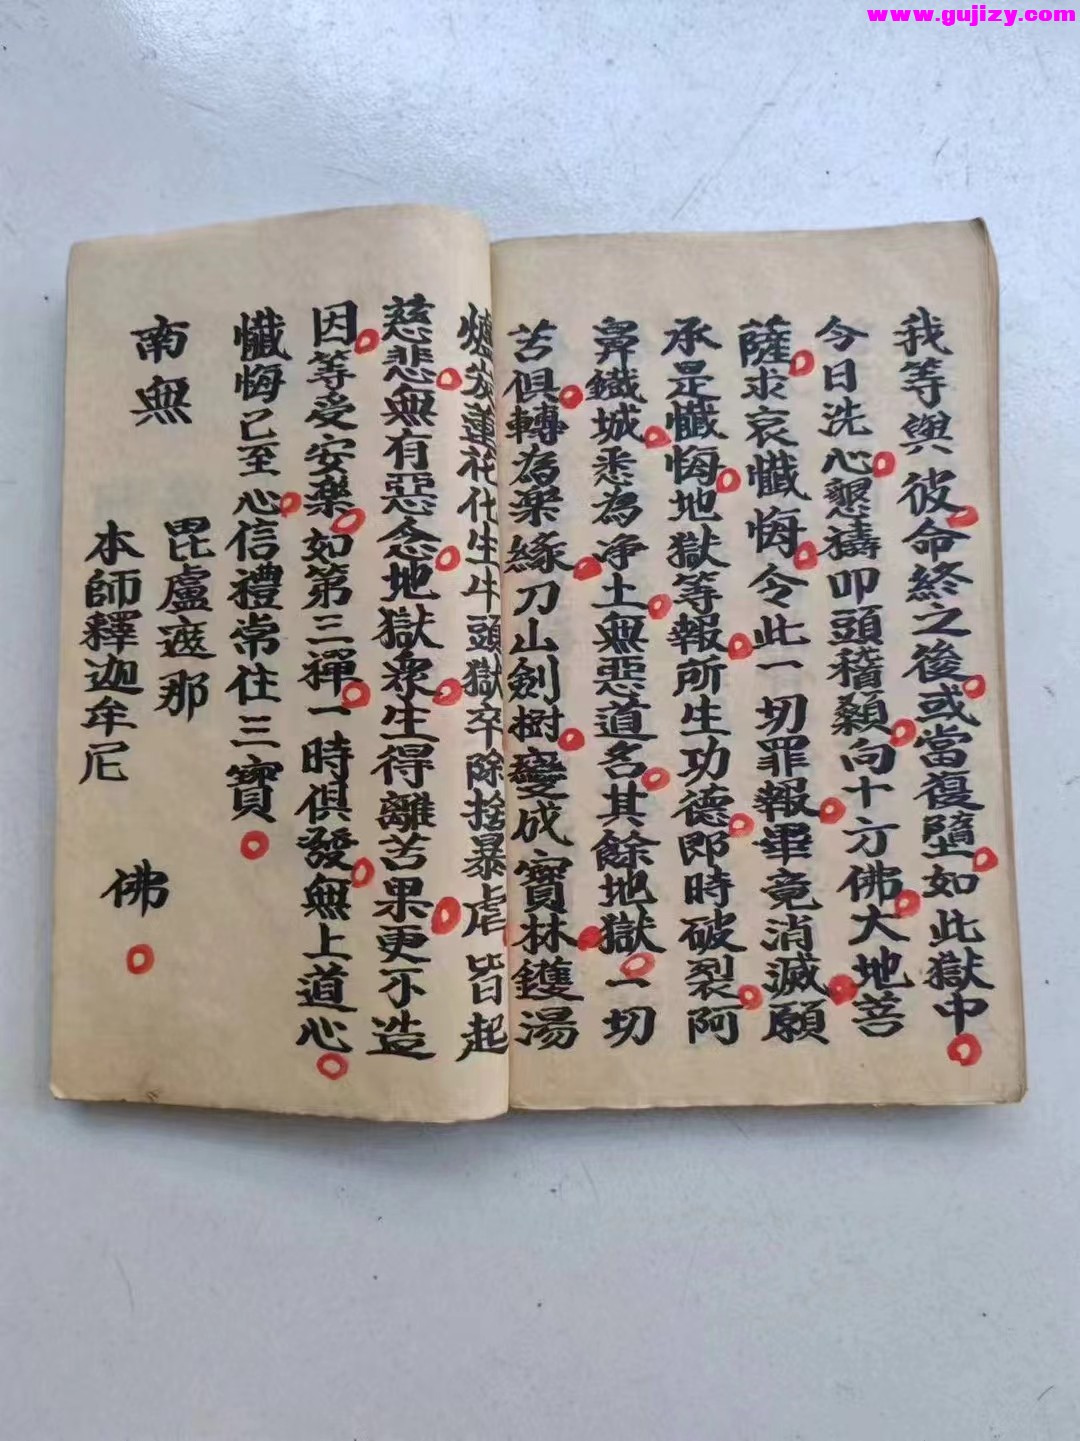 www.gujizy.com
我等與彼命終之後或當復墮如此獄中
今日洗心懇禱叩頭稽顙向十方佛大地菩
薩求哀懺悔令此一切罪報畢竟消滅願
承是懺悔地獄等報所生功德即時破裂阿
鼻鐵城悉為净土無惡道名其餘地獄一切
苦俱轉為樂緣刀山劍樹變成寶林鑊湯
爐炭蓮花化生牛頭獄卒除捨暴虐皆起
慈悲無有惡念地獄眾生得離苦果更不造
因等受安樂如第三禪一時俱發無上道心
懺悔已至心信禮常住三寶
南無
毘盧遮那
本師釋迦牟尼
佛